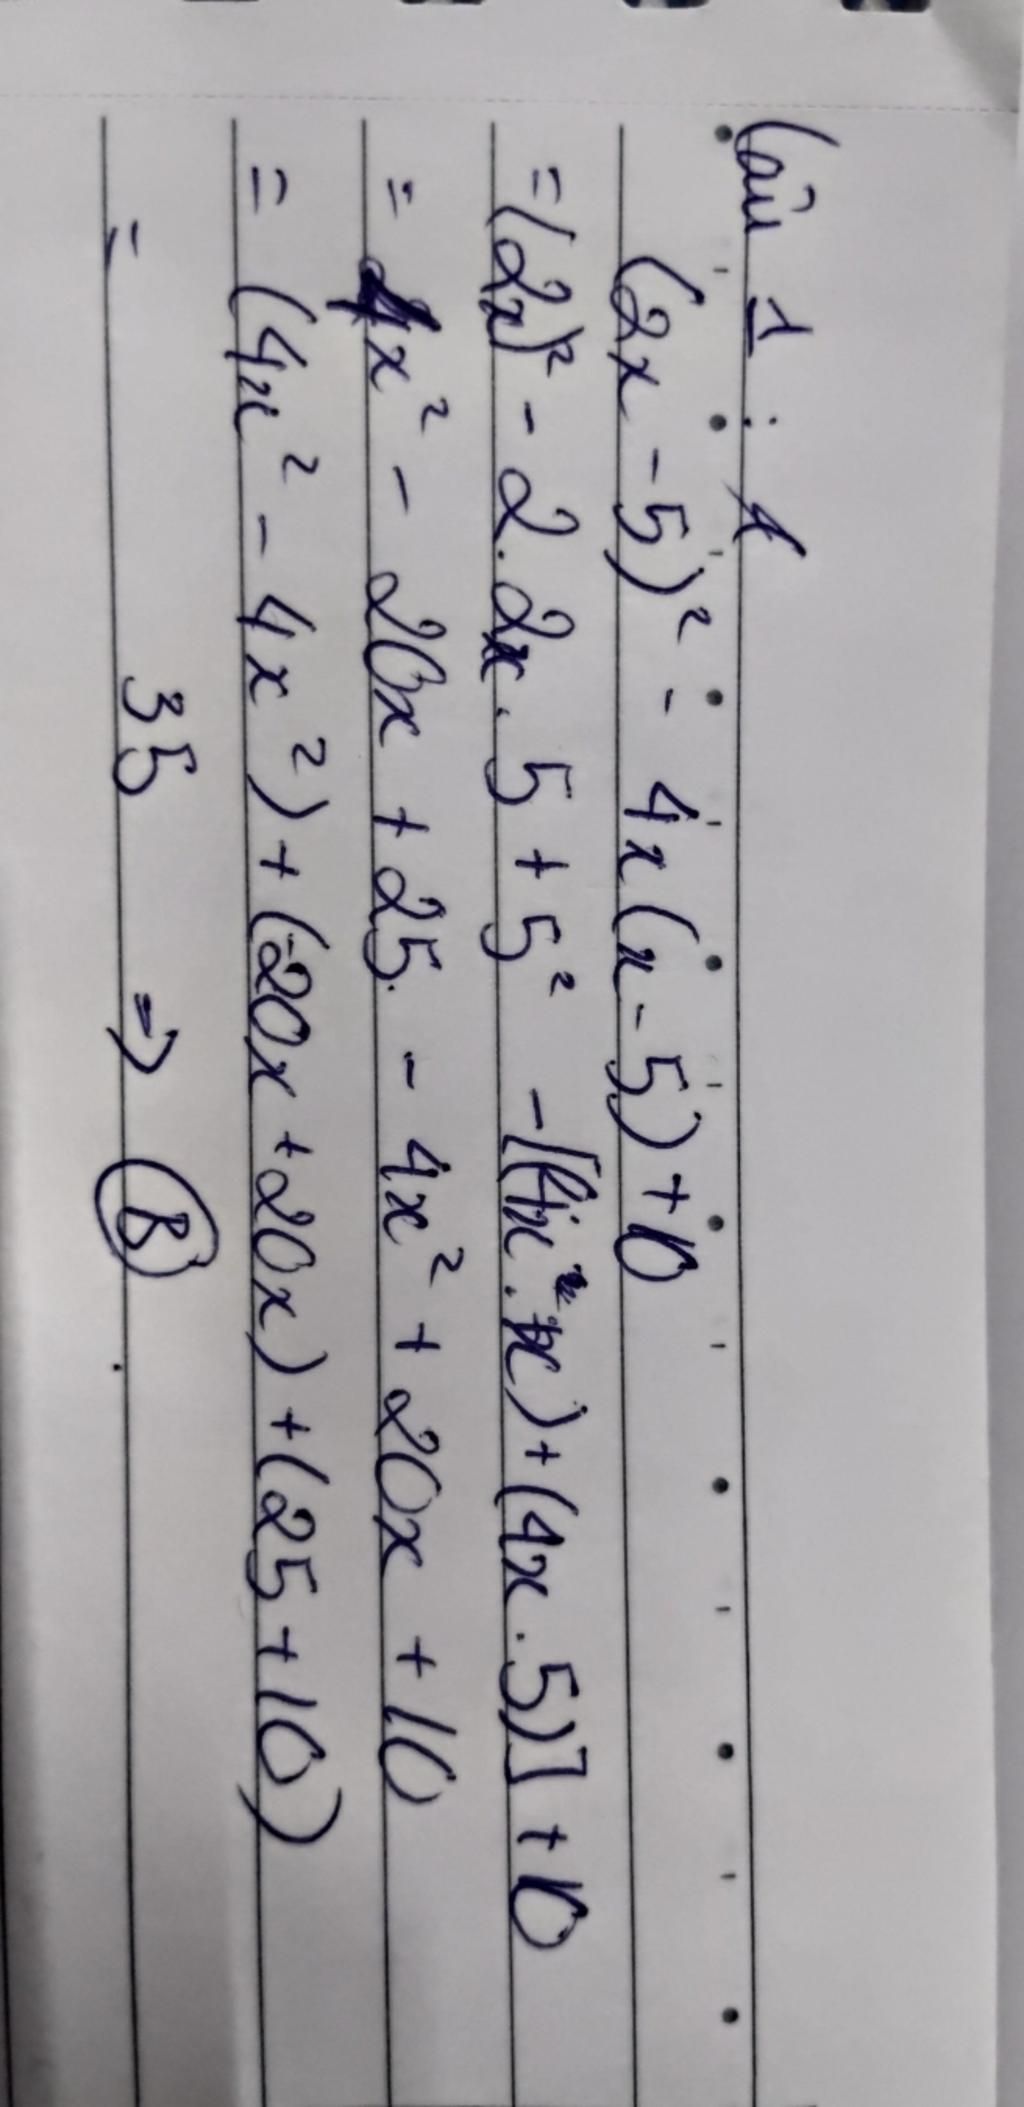 Câu 1 : A
(2x - 5)² - 4x(x - 5) + 10
= (2x)² - 2.2x.5 + 5² - [(4x.x) + (4x.5)] + 10
= 4x² - 20x + 25 - 4x² + 20x + 10
= (4x² - 4x²) + (-20x + 20x) + (25 + 10)
= 35 => B